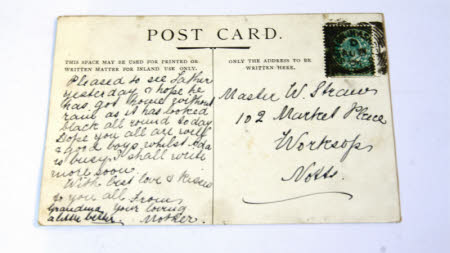 POST CARD.
THIS SPACE MAY BE USED FOR PRINTED OR
WRITTEN MATTER FOR INLAND USE ONLY.
ONLY THE ADDRESS TO BE
WRITTEN HERE.
Pleased to see Father
yesterday & hope he
has got home without
rain as it has looked
black all round today
Hope you all are well
& good boys, whilst Ada
is busy. I shall write
more soon.
With best love & kisses
to you all from
Grandma your loving
a little better. Mother
Master W. Straw
102 Market Place
Worksop
Notts.